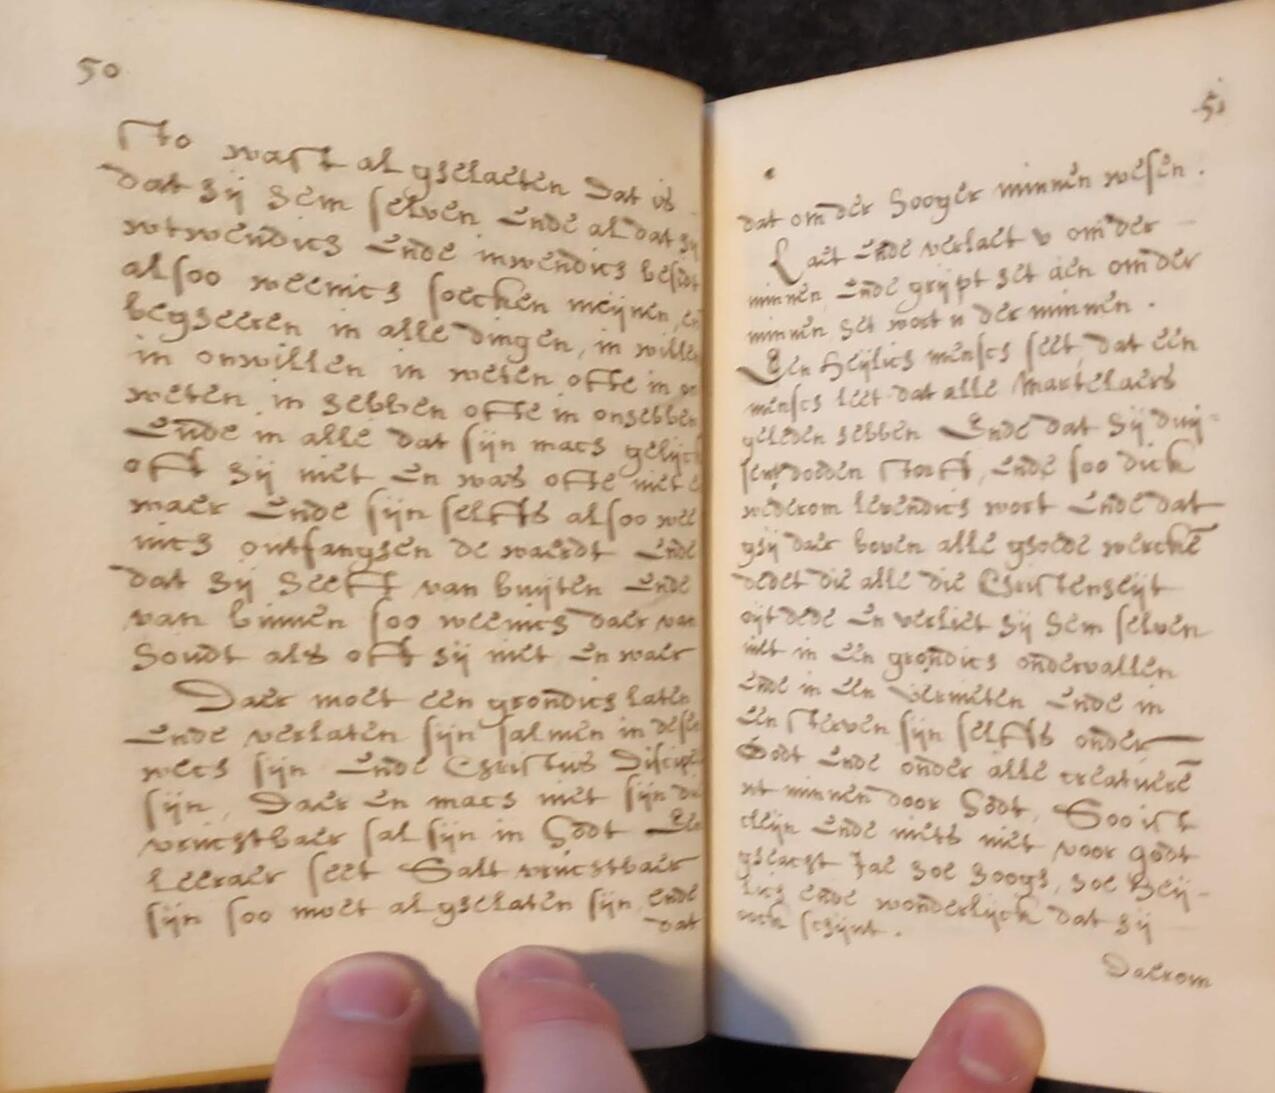 50
sto wast al ghelaeten dat is
dat hij hem selven ende al dat hij
wtwendich ende inwendich besidt
alsoo weenich soecken meijnen, en
begheeren in alle dingen, in willen
in onwillen in weten ofte in on
weten in hebben ofte in onhebben
Ende in alle dat sijn mach gelijck
oft hij niet en was ofte niet e
maer ende sijn selfs alsoo wee
nich ontfanghen de waerdt ende
dat hij heeft van buijten ende
van binnen soo weenich daer van
houdt als oft hij niet en waer
Daer moet een grondich laten
ende verlaten sijn sal men in desen
wech sijn ende Christus Discipel
sijn, Daer en mach niet sijn dat
vruchtbaer sal sijn in Godt Een
Leeraer seet Salt vruchtbaer
sijn soo moet al ghelaten sijn, ende
dat
51
dat om der hooger minnen wesen.
Laet ende verlaet v om der
minnen ende grijpt het aen om der
minnen, het wort v der minnen.
Een heijlich mensch seet, dat een
mensch leet dat alle Martelaers
geleden hebben Ende dat hij duij-
sent dooden storft, ende soo dick
wederom levendich wort ende dat
ghij daer boven alle ghoede wercken
dedet die alle die Christenheijt
oijt dede en verliet hij hem selven
niet in een grondich ondervallen
ende in een vernieten ende in
een sterven sijn selfs onder
Godt ende onder alle creatueren
wt minnen door Godt, Soo ist
cleijn ende niets niet voor godt
gheacht Jae hoe hoogh, hoe heij-
lich ende wonderlijck dat hij
oock schijnt.
Daerom